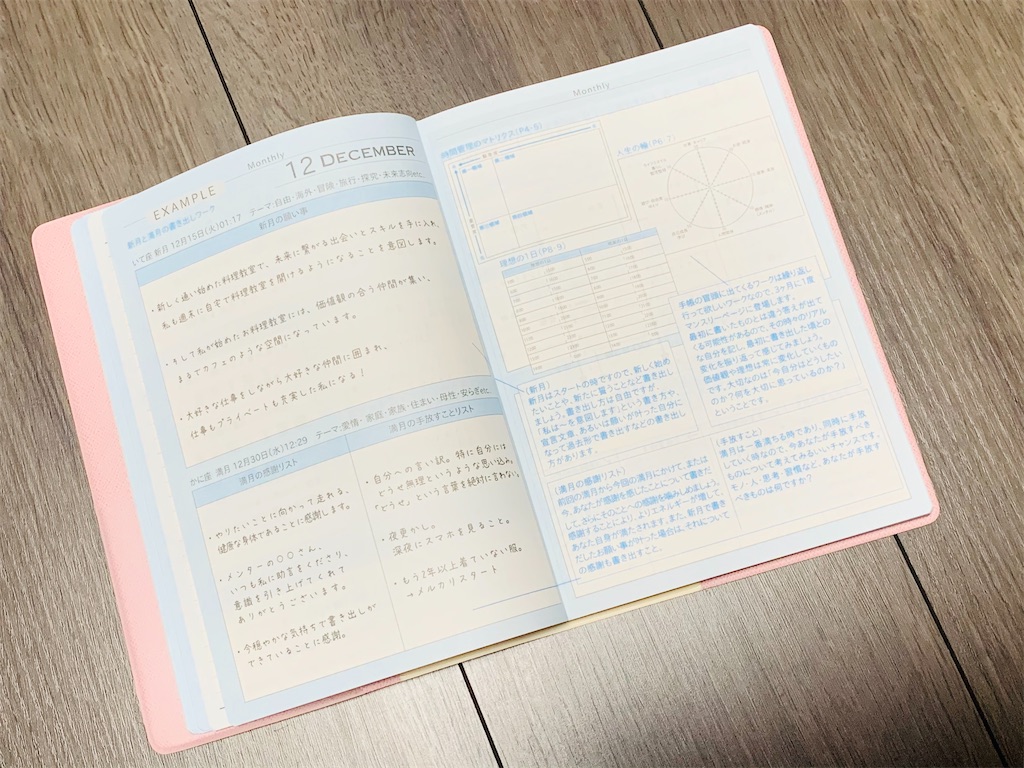 Monthly
12 DECEMBER
EXAMPLE
新月と満月の書き出しワーク
いて座 新月 12月15日(火)01:17 テーマ:自由・海外・冒険・旅行・探究・未来志向etc.
新月の願い事
・新しく通い始めた料理教室で、未来に繋がる出会いとスキルを手に入れ、
私も週末に自宅で料理教室を開けるようになることを意図します。
・そして私が始めたお料理教室には、価値観の合う仲間が集い、
まるでカフェのような空間になっています。
・大好きな仕事をしながら大好きな仲間に囲まれ、
仕事もプライベートも充実した私になる!
かに座 満月 12月30日(水)12:29 テーマ:愛情・家庭・家族・住まい・母性・安らぎetc.
満月の感謝リスト
・やりたいことに向かって走れる、
健康な身体であることに感謝します。
・メンターの〇〇さん、
いつも私に助言をくださり、
意識を引き上げてくれて
ありがとうございます。
・今穏やかな気持ちで書き出しが
できていることに感謝。
満月の手放すことリスト
・自分への言い訳。特に自分には
どうせ無理というような思い込み。
「どうせ」という言葉を絶対に言わない。
・夜更かし。
深夜にスマホを見ること。
・もう2年以上着ていない服。
→メルカリスタート
Monthly
時間管理のマトリクス(P4-5)
人生の輪(P6-7)
理想の1日(P8-9)
手帳の冒頭に出てくるワークは繰り返し
行って欲しいワークなので、3ヶ月に1度
マンスリーページに登場します。
最初に書いたものとは違う答えが出て
くる可能性があるので、その時々のリアル
な自分を記し、最初に書き出した頃との
変化を振り返って感じてみましょう。
価値観や理想は常に変化していくもの
です。大切なのは「今自分はどうしたい
のか?何を大切に思っているのか?」
ということです。
(新月)
新月はスタートの時ですので、新しく始め
たいことや、新たに誓うことなど書き出し
ましょう。書き出し方は自由ですが、
「私は〜を意図します」という書き方や、
宣言文章、あるいは願いが叶った自分に
なって過去形で書き出すなどの書き出し
方があります。
(満月の感謝リスト)
前回の満月から今回の満月にかけて、または
今、あなたが感謝を感じたことについて書きだ
して、さらにそのことへの感謝を噛みしめましょう。
感謝することにより、よりエネルギーが増して、
あなた自身が満たされます。また、新月で書き
だしたお願い事が叶った場合は、それについて
の感謝も書き出すこと。
(手放すこと)
満月は、最満ちる時であり、同時に手放
していく時なので、今あなたが手放すべき
ものについて考えてみるいいチャンスです。
モノ・人・思考・習慣など、あなたが手放す
べきものは何ですか?